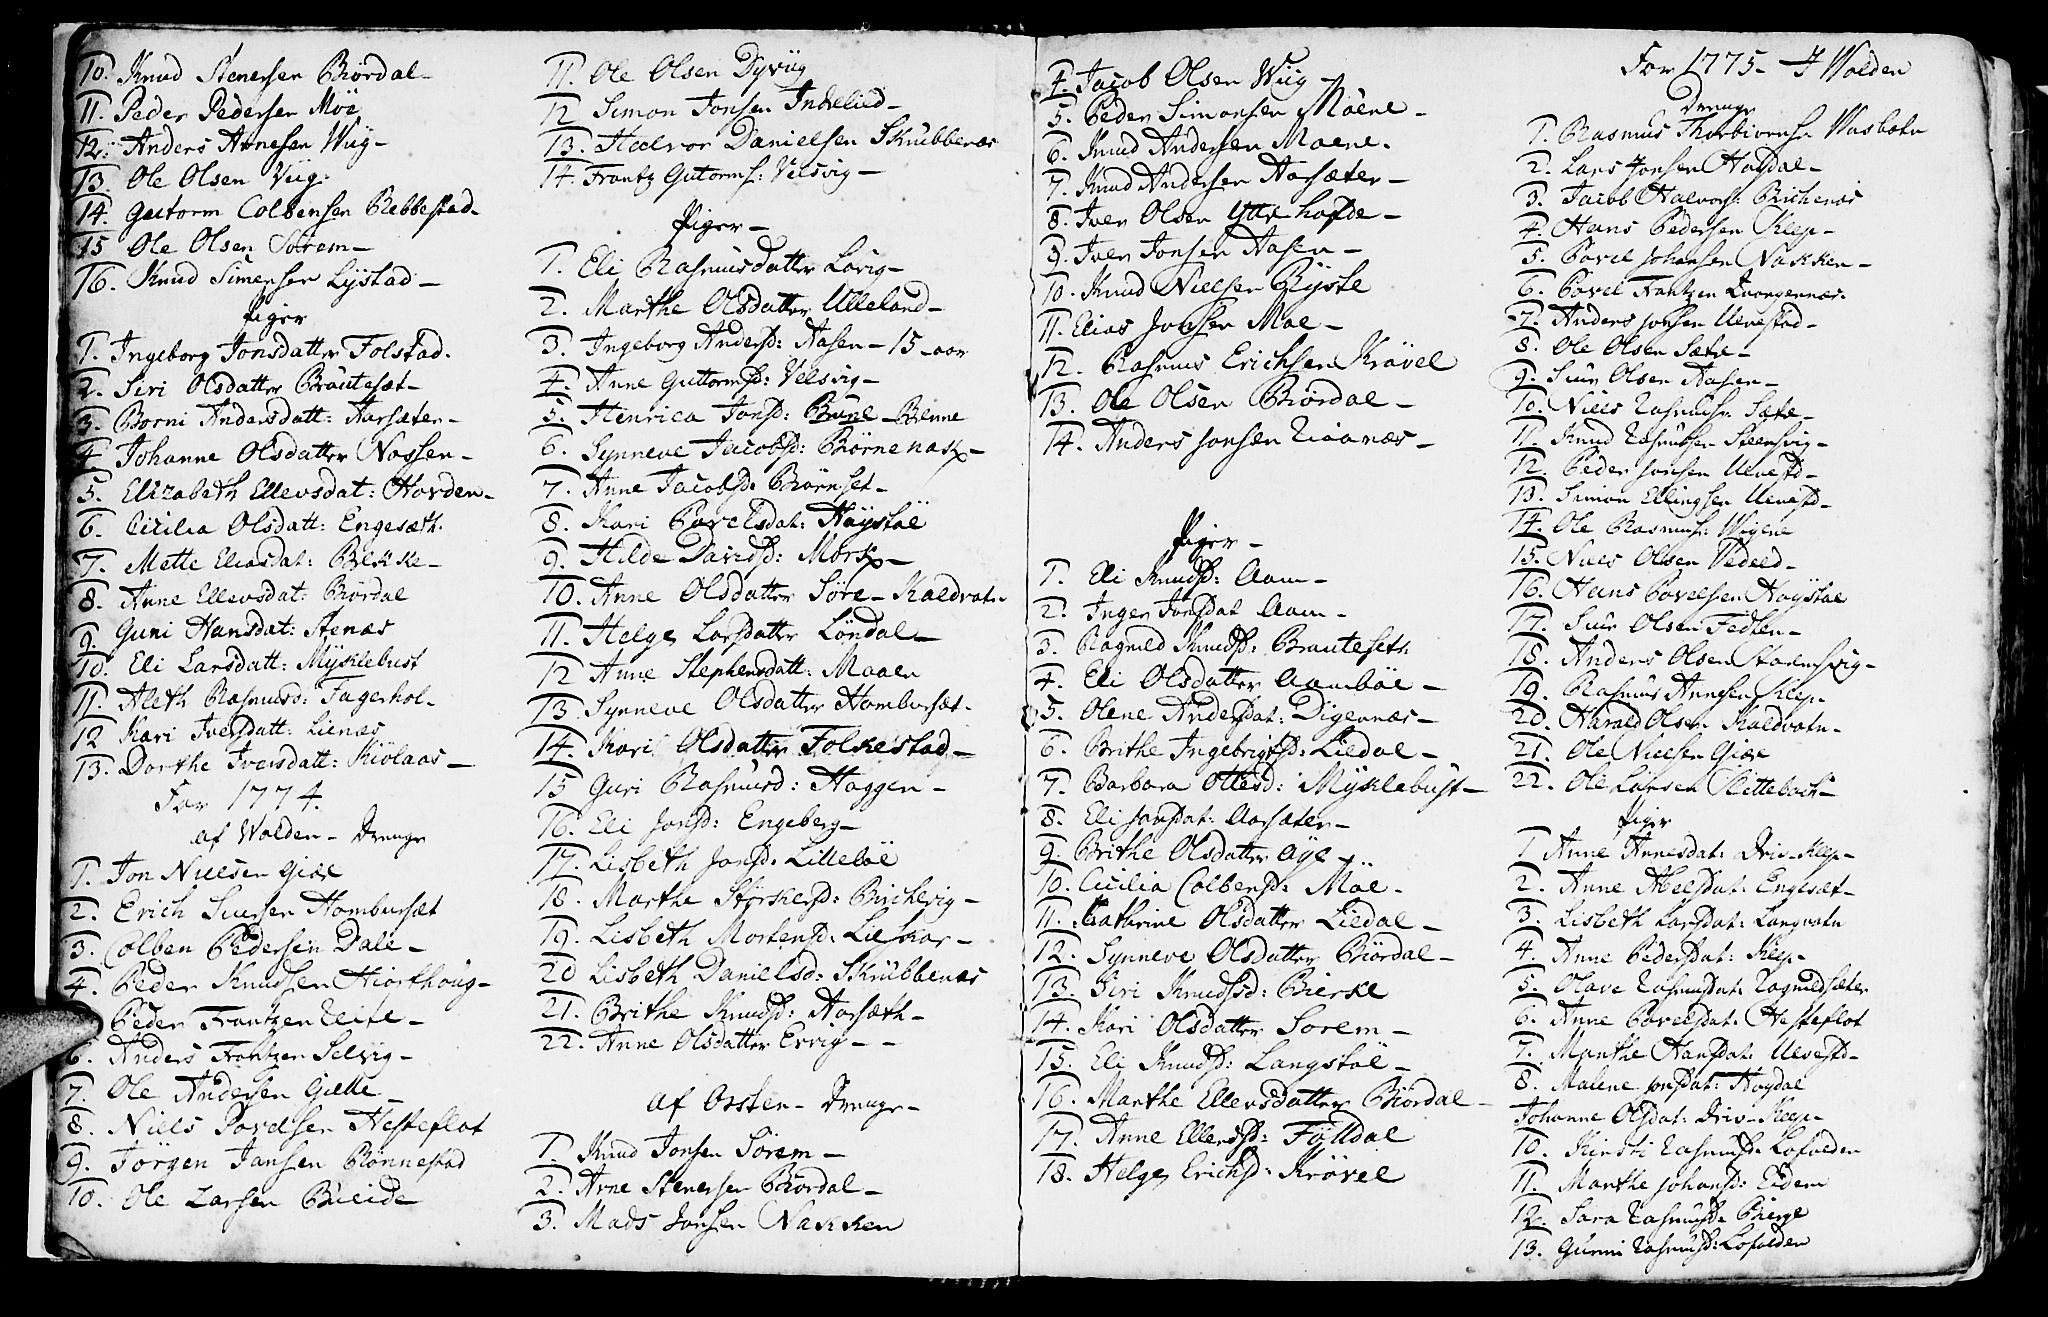 10. Knud Stenersen Bördal-
11. Peder Pedersen Möe
12. Anders Arnesen Wiig-
13. Ole Olsen Viig.
14. Guttorm Colbensen Rebbestad-
15 Ole Olsen Sörem-
16. Knud Simensen Lystad-
Piger
1. Ingeborg Jonsdatter Folstad.
2. Siri Olsdatter Bräutesæt-
3. Borni Andersdatt: Aarsæter-
4 Johanne Olsdatter Nossen-
5. Elizabeth Ellevsdat: Hovden-
6. Cicilia Olsdatt: Engesæth.
7. Mette Eliasdat: Bekke-
8. Anne Ellevsdat: Bördal
9. Guni Hansdat: Stenæs
10. Eli Larsdatt: Myklebust
11. Aleth Rasmusd: Fagerhol-
12 Kari Iversdatt: Lienæs
13. Dorthe Iversdatt: Kiölaas-
For 1774.
af Wolden- Drenge
1. Jon Nielsen Giöe
2. Erich Siursen Hombursæt
3. Colben Pedersen Dale-
4. Peder Knudsen Hiorthoug-
Peder Frantzen Reite-
6. Anders Frantzen Selvig-
7. Ole Andersen Gielle-
8. Niels Povelsen Hesteflot
9. Jörgen Jansen Rönnestad
10. Ole Larsen Bueide
11. Ole Olsen Dyviig
12 Simon Jonsen Indselied-
13. Hælvor Danielsen Skrubbenæs
14. Frantz Gutorms: Velsvig-
Piger-
1. Eli Rasmusdatter Lovig-
2. Marthe Olsdatter Ulleland-
3. Ingeborg Andersd: Aasen-15-aar
4. Anne Guttormsd: Velsvig-
5. Henrica Jonsd: Brune-Benne
6. Synneve Jacobsd: Börnenass-
7. Anne Jacobsd: Börnset-
8. Kari Povelsdat: Höystöl
9. Hilde Davidsd: Mork-
10. Anne Olsdatter Söre-Kaldvatn
11. Helge Larsdatter Löndal-
12 Anne Stephensdatt: Maaen
13. Synneve Olsdatter Hombursæt.
14. Kari Olsdatter Folkestad-
15 Guri Rasmusd: Haggen-
16. Eli Jonsd: Engeberg-
17. Lisbeth Jonsd. Lilleböe
18. Marthe Störkersd: Birchevig-
19. Lisbeth Mortensd: Lieskar-
20 Lisbeth Danielsd: Skrubbenæs
21. Brithe Knudsd: Aarsæth-
22. Anne Olsdatter Ervig- -
af Orsten- Drenge-
1. Knud Jonsen Sörem-
2. Arne Stenersen Bördal-
3. Mads Jonsen Nakken
4. Jacob Olsen Wiig-
5. Peder Simonsen Möene-
6. Knud Andersen Moene.
7. Knud Andersen Aarsæter-
8. Iver Olsen Yttrhofde-
9. Iver Jonsen Aasen-
10. Knud Nielsen Ryste
11. Elias Jonsen Moe-
12. Rasmus Erichsen Krövel
13. Ole Olsen Bördal-
14. Anders Jonsen Raanæs-
Piger-
1. Eli Knudsd: Aam-
2. Inger Jonsdat Aam-
3. Ragnild Knudsd: Brauteseth
4. Eli Olsdatter Aamböe-
5. Olene Andersdat: Digernæs-
6. Brithe Ingebrigtsd: Liedal-
7. Barbara Ottesd: Myklebust-
8. Eli Jonsdat: Aarsæter-
9. Brithe Olsdatter Öye-
10. Cicilia Colbensd: Möe-
11. Catharine Olsdatter Liedal-
12. Synneve Olsdatter Bördal-
13. Siri Knudsd: Bierke
14. Kari Olsdatter Sorem-
15. Eli Knudsd: Langstöl-
16. Marthe Ellevsdatter Bördal-
17. Anne Ellevsd: Fölldal
18. Helge Erichsd: Krövel
For 1775- I Wolden
Drenge
1. Rasmus Thorbiörns: Vasbotn
2. Lars Jonsen Hogdal-
3. Jacob Halvors: Birchenæs
4. Hans Pedersen Klep-
5. Povel Johansen Nakken-
6. Povel Frantzen Qvangernæs.
7. Anders Jonsen Ulvestad-
8. Ole Olsen Sæte-
9. Siur Olsen Aasen-
10. Niels Rasmuss: Sæte-
11. Knud Rasmussen Steensvig-
12. Peder Jonsen Ulvestd-
13. Simon Ellingsen Ulvestd-
14. Ole Rasmuss: Wigene
15. Niels Olsen Vedeld-
16. Hans Povelsen Höystöl
17. Siur Olsen Fedten-
18. Anders Olsen Steensvig-
19. Rasmus Arnesen Klep-
20. Harald Olsen Kaldvatn-
21. Ole Nielsen Giöe
22. Ole Larsen Slettebach-
Piger
1 Anne Arnesdat: Driv-Klep-
2. Anne Abelsdat: Engesæt-
3. Lisbeth Larsdat: Langvatn
4. Anne Pedersdat: Klep-
5. Olave Rasmusdat: Ragnildsæter
6. Anne Povelsdat: Hesteflot
7. Marthe Hansdat: Ulvestd-
8. Malene Jonsdat: Hogdal
Johanne Olsdat: Driv-Klep-
10. Kirsti Rasmusd: Lofolden
11. Marthe Johansd: Eidem
12. Sara Rasmusd: Bierge
13. Gunni Rasmusd: Lofolden